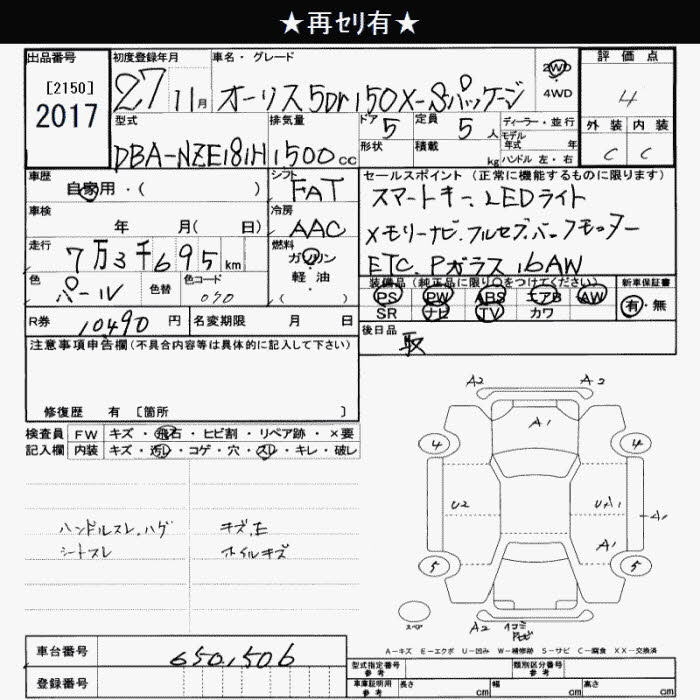 ★再ｾﾘ有★
出品番号
[2150]
2017
初度登録年月
27 11月
車名・グレード
オーリス 5Dr 150X-Sパッケージ
2WD
4WD
評価点
4
外装 内装
C C
型式
DBA-NZE181H
排気量
1500 cc
ドア 5
定員 5 人
形状
積載 kg
ディーラー・並行
モデル年式 年
ハンドル 左・右
車歴
自家用・( )
シフト
FAT
車検
年 月( 日)
冷房
AAC
走行
7万3千695km
燃料
ガソリン
軽油
( )
色
パール
色替
色コード
070
R券 10490 円
名変期限 月 日
セールスポイント(正常に機能するものに限ります)
スマートキー、LEDライト
メモリーナビ・フルセグ・バックモニター
ETC、Pガラス 16AW
装備品(純正品に限り○をつけてください)
PS PW ABS エアB AW
SR ナビ TV カワ
新車保証書
有・無
後日品
取
注意事項申告欄(不具合内容等は具体的に記入して下さい)
修復歴 有 [箇所 ]
検査員 FW キズ・飛石・ヒビ割・リペア跡・×要
記入欄 内装 キズ・汚れ・コゲ・穴・スレ・キレ・破レ
ハンドルスレ、ハゲ キズ、E
シートスレ ホイルキズ
A2 A2
A1
4 4
U2 UA1 A1
A1
5 5
スペア
A2
A-キズ E-エクボ U-凹み W-補修跡 S-サビ C-腐食 XX-交換済
車台番号 650,506
登録番号
型式指定番号 参考
類別区分番号 参考
車庫証明用 参考 長さ cm 幅 cm 高さ cm